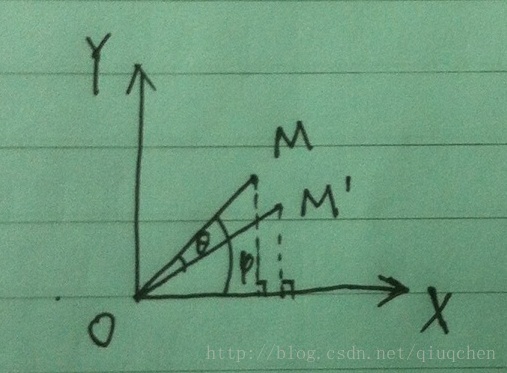 Y
M
M'
θ
φ
O
X
http://blog.csdn.net/qiuqchen